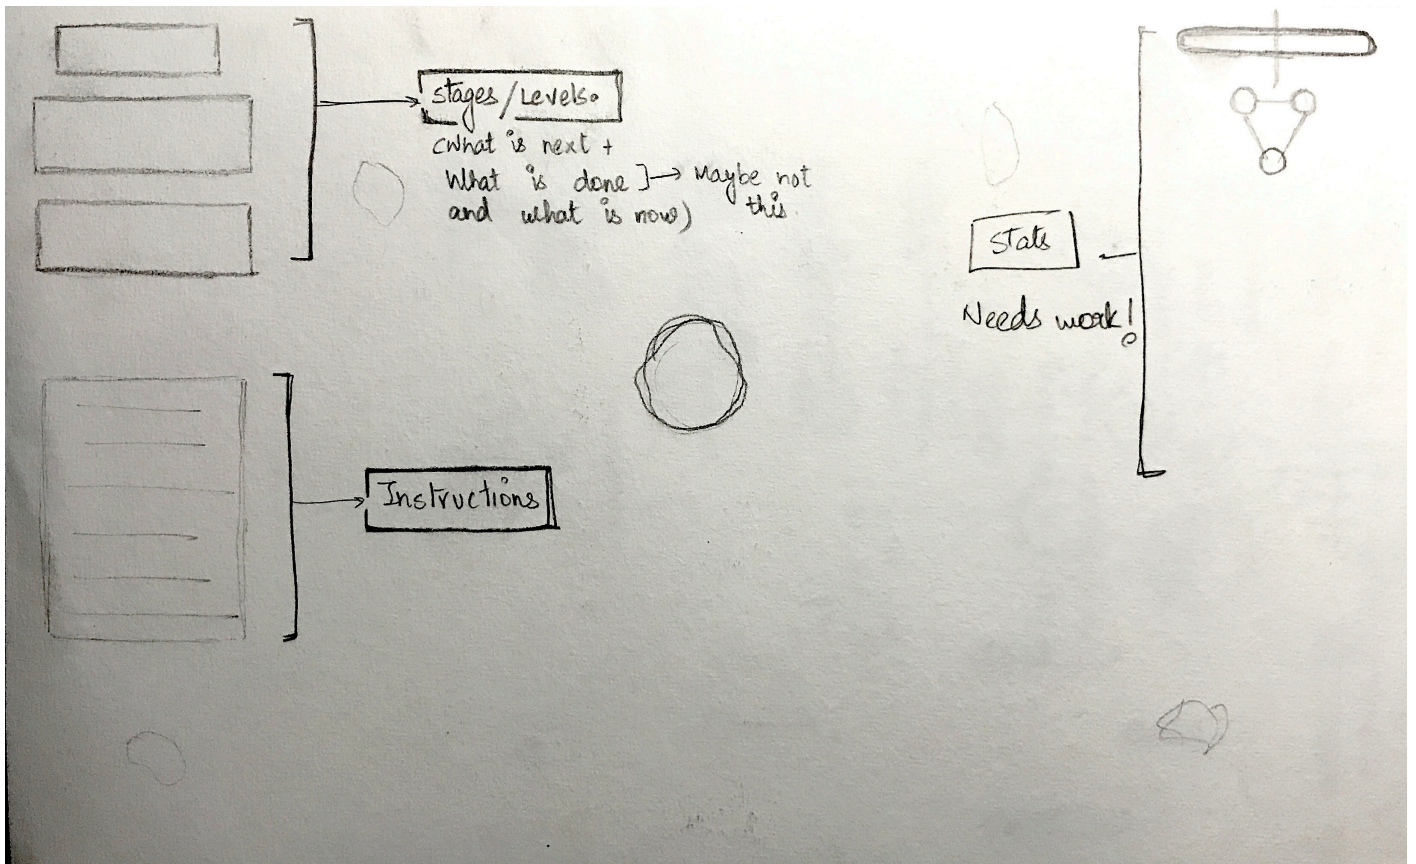 Stages/Levels.
(What is next +
What is done ]→ Maybe not
this
and what is now)
Stats
Needs work!
Instructions